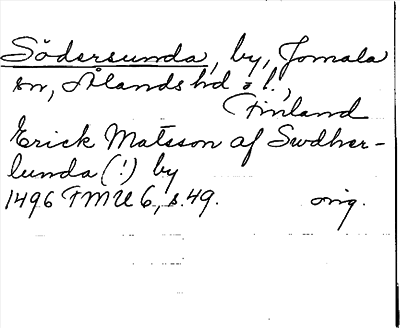 Södersunda, by, Jomala
sn, Ålands hd o l.,
Finland
Erick Matsson af Swdher-
lunda (!) by
1496 FMU 6, s. 49. orig.